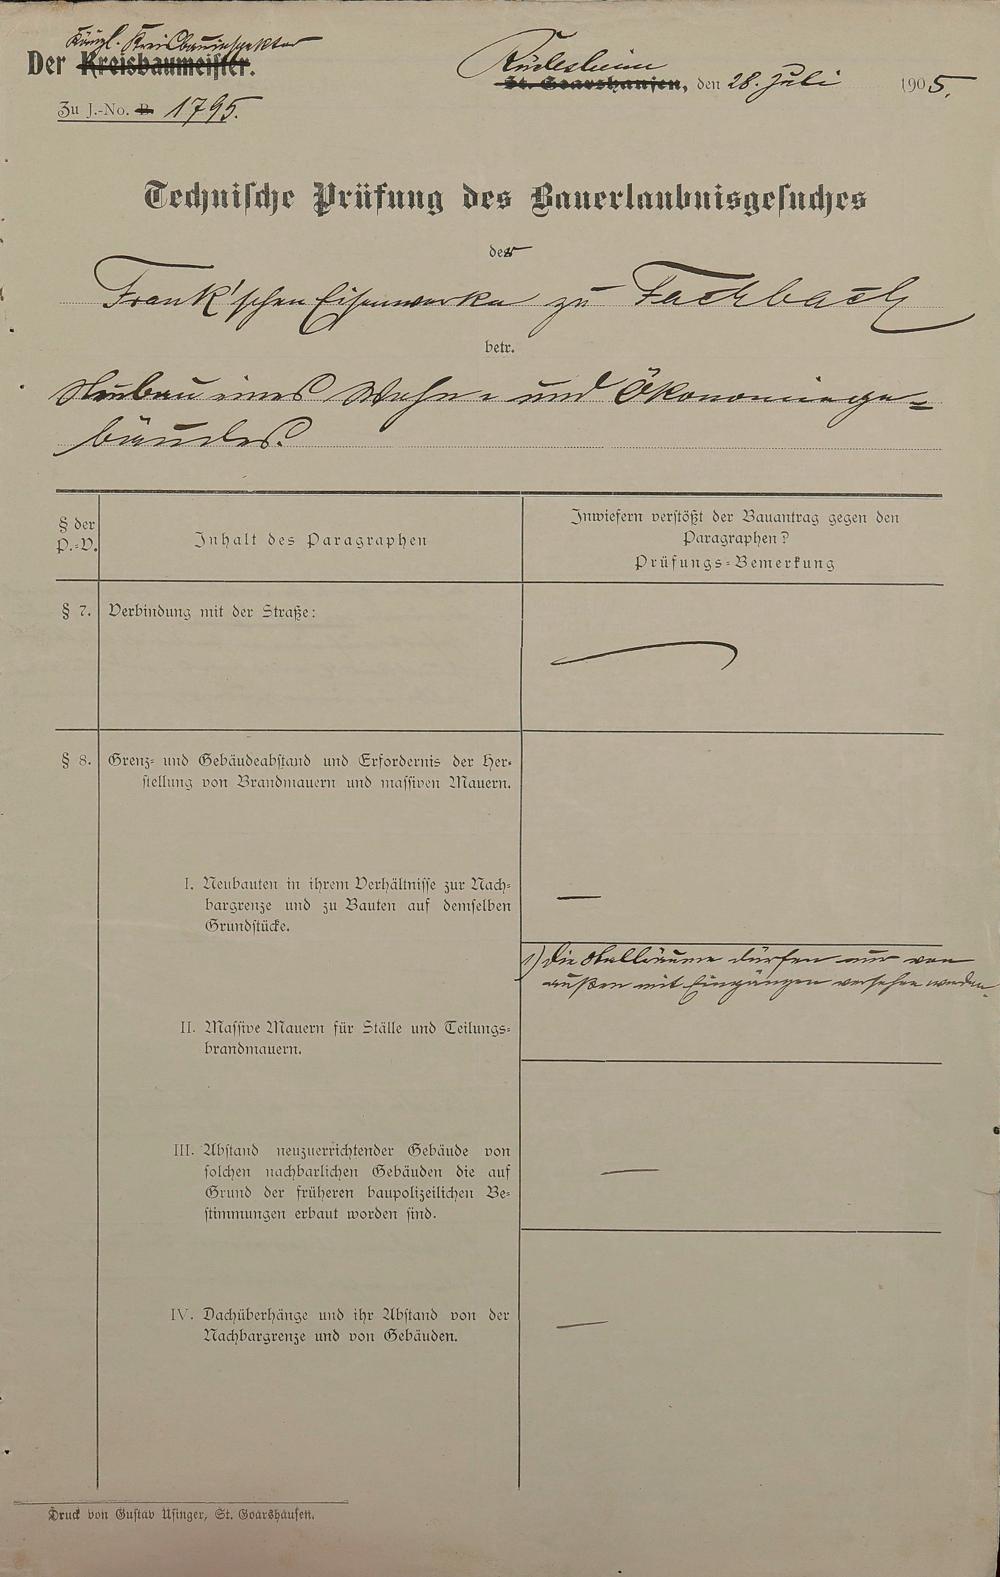 Königl. Kreisbauinspektor
Der Kreisbaumeister.
Rüdesheim
St. Goarshausen, den 28. Juli 1905.
Zu J.-No. B. 1795.
Technische Prüfung des Bauerlaubnisgesuches
der
Frank'schen Eisenwerke zu Fachbach
betr.
Neubau eines Wohn- und Ökonomiege-
bäudes.
§ der P.-V.
Inhalt des Paragraphen
Inwiefern verstößt der Bauantrag gegen den
Paragraphen?
Prüfungs-Bemerkung
§ 7. Verbindung mit der Straße:
§ 8. Grenz- und Gebäudeabstand und Erfordernis der Her-
stellung von Brandmauern und massiven Mauern.
I. Neubauten in ihrem Verhältnisse zur Nach-
bargrenze und zu Bauten auf demselben
Grundstücke.
—
1) Die Stallräume dürfen nur von
außen mit Eingängen versehen werden.
II. Massive Mauern für Ställe und Teilungs-
brandmauern.
III. Abstand neuzuerrichtender Gebäude von
solchen nachbarlichen Gebäuden die auf
Grund der früheren baupolizeilichen Be-
stimmungen erbaut worden sind.
—
IV. Dachüberhänge und ihr Abstand von der
Nachbargrenze und von Gebäuden.
—
Druck von Gustav Usinger, St. Goarshausen.